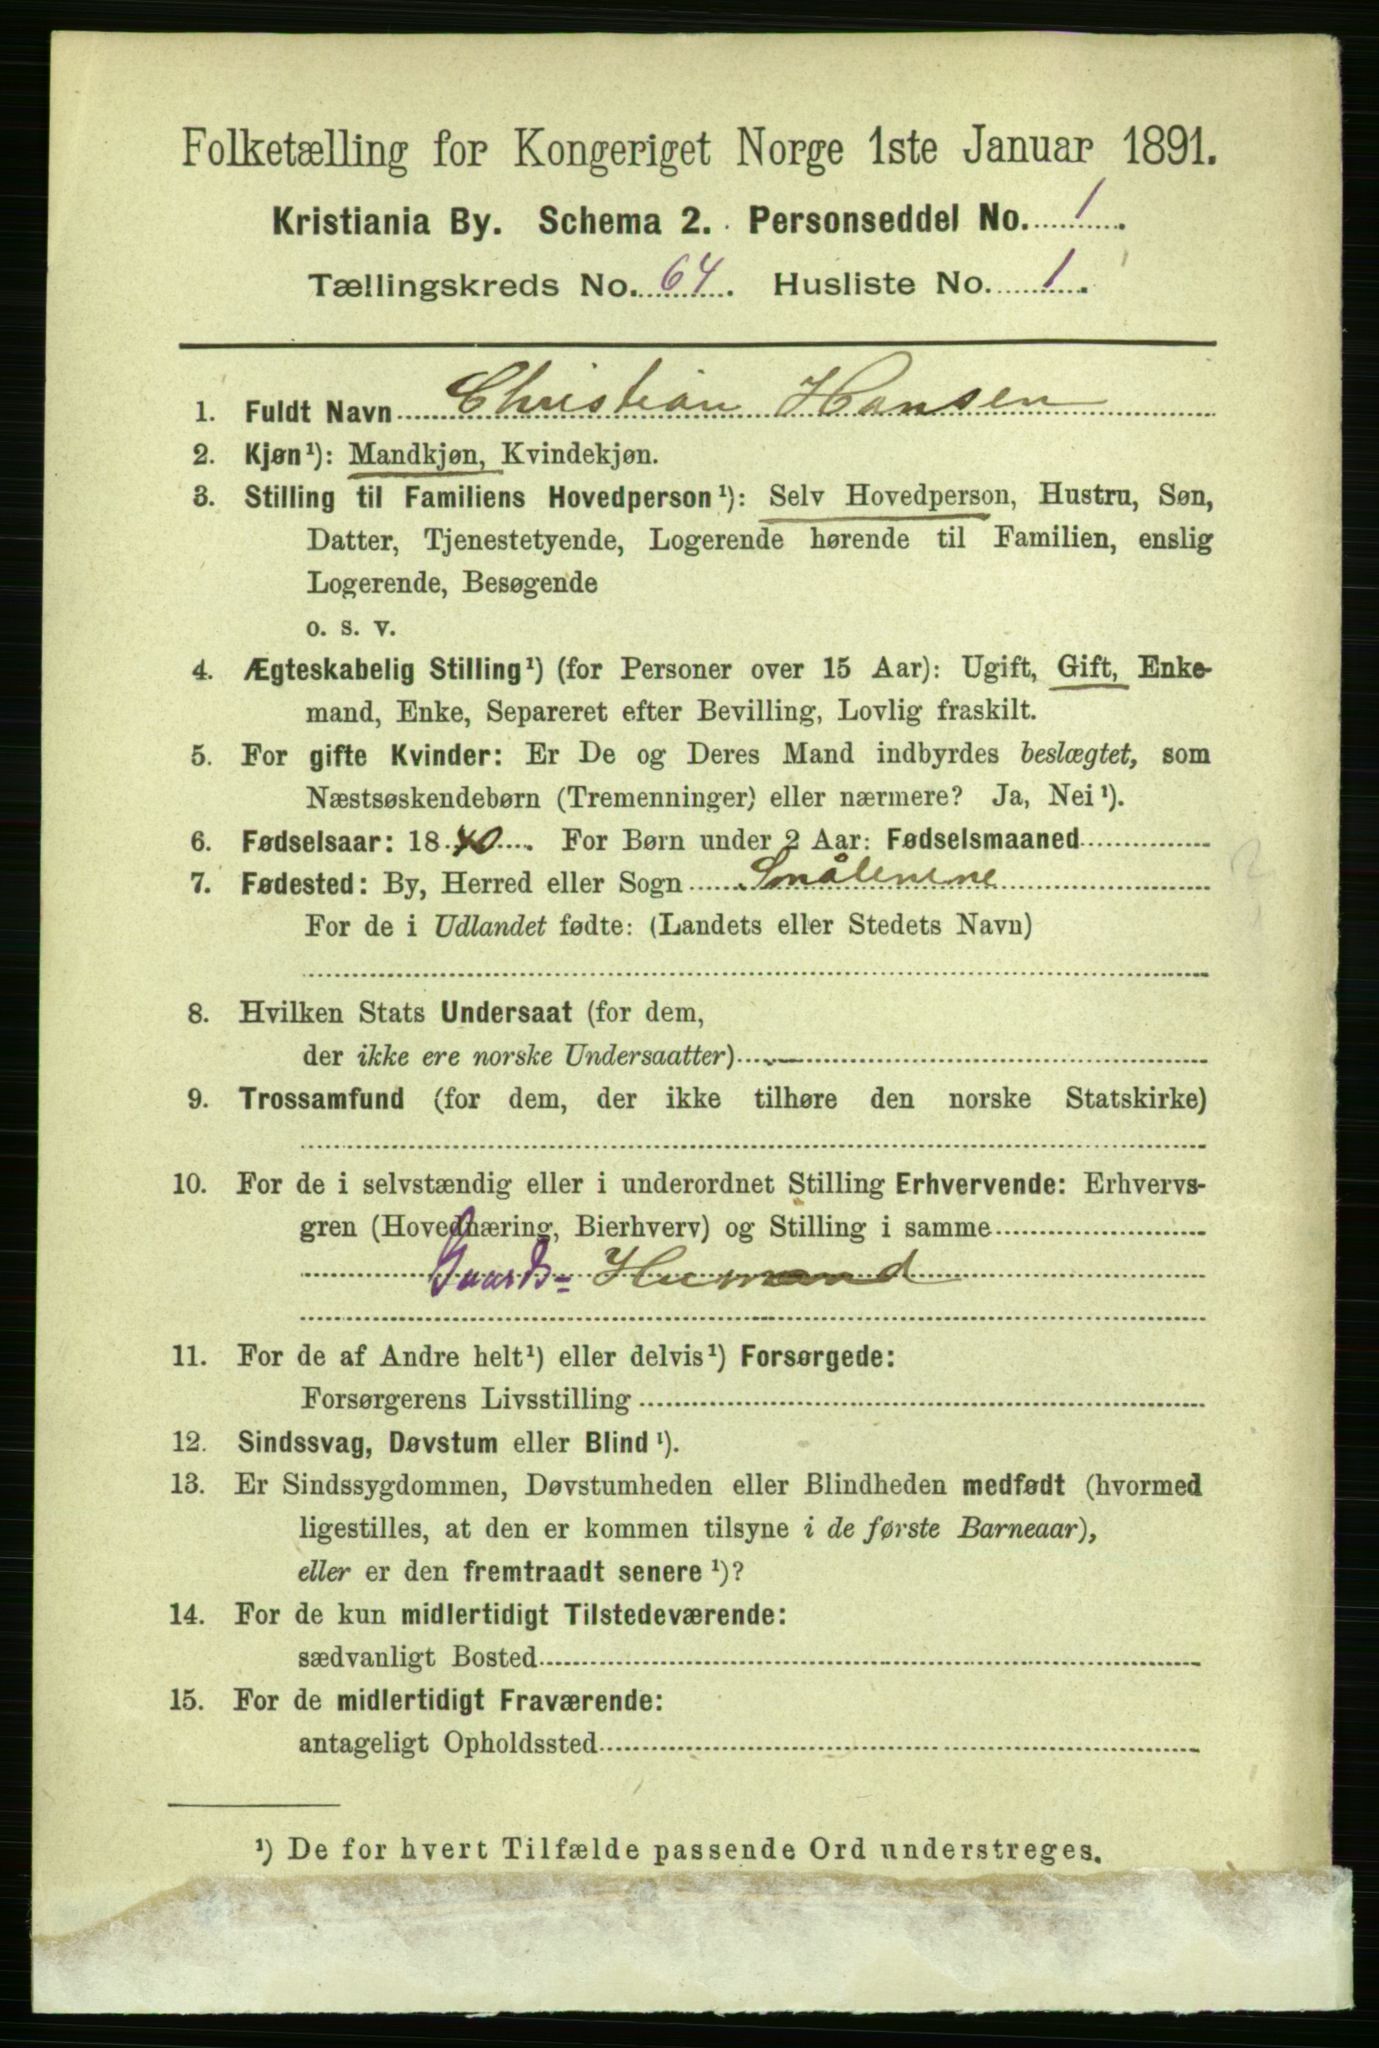 Folketælling for Kongeriget Norge 1ste Januar 1891.
Kristiania By. Schema 2. Personseddel No. 1.
Tællingskreds No. 64. Husliste No. 1.
1. Fuldt Navn Christian Hansen
2. Kjøn¹): Mandkjøn, Kvindekjøn.
3. Stilling til Familiens Hovedperson¹): Selv Hovedperson, Hustru, Søn,
Datter, Tjenestetyende, Logerende hørende til Familien, enslig
Logerende, Besøgende
o. s. v.
4. Ægteskabelig Stilling¹) (for Personer over 15 Aar): Ugift, Gift, Enke-
mand, Enke, Separeret efter Bevilling, Lovlig fraskilt.
5. For gifte Kvinder: Er De og Deres Mand indbyrdes beslægtet, som
Næstsøskendebørn (Tremenninger) eller nærmere? Ja, Nei¹).
6. Fødselsaar: 1840. For Børn under 2 Aar: Fødselsmaaned
7. Fødested: By, Herred eller Sogn Smålenene
For de i Udlandet fødte: (Landets eller Stedets Navn)
8. Hvilken Stats Undersaat (for dem,
der ikke ere norske Undersaatter)
9. Trossamfund (for dem, der ikke tilhøre den norske Statskirke)
10. For de i selvstændig eller i underordnet Stilling Erhvervende: Erhvervs-
gren (Hovednæring, Bierhverv) og Stilling i samme
Gaards-
11. For de af Andre helt¹) eller delvis¹) Forsørgede:
Forsørgerens Livsstilling
12. Sindssvag, Døvstum eller Blind¹).
13. Er Sindssygdommen, Døvstumheden eller Blindheden medfødt (hvormed
ligestilles, at den er kommen tilsyne i de første Barneaar),
eller er den fremtraadt senere¹)?
14. For de kun midlertidigt Tilstedeværende:
sædvanligt Bosted
15. For de midlertidigt Fraværende:
antageligt Opholdssted
¹) De for hvert Tilfælde passende Ord understreges.